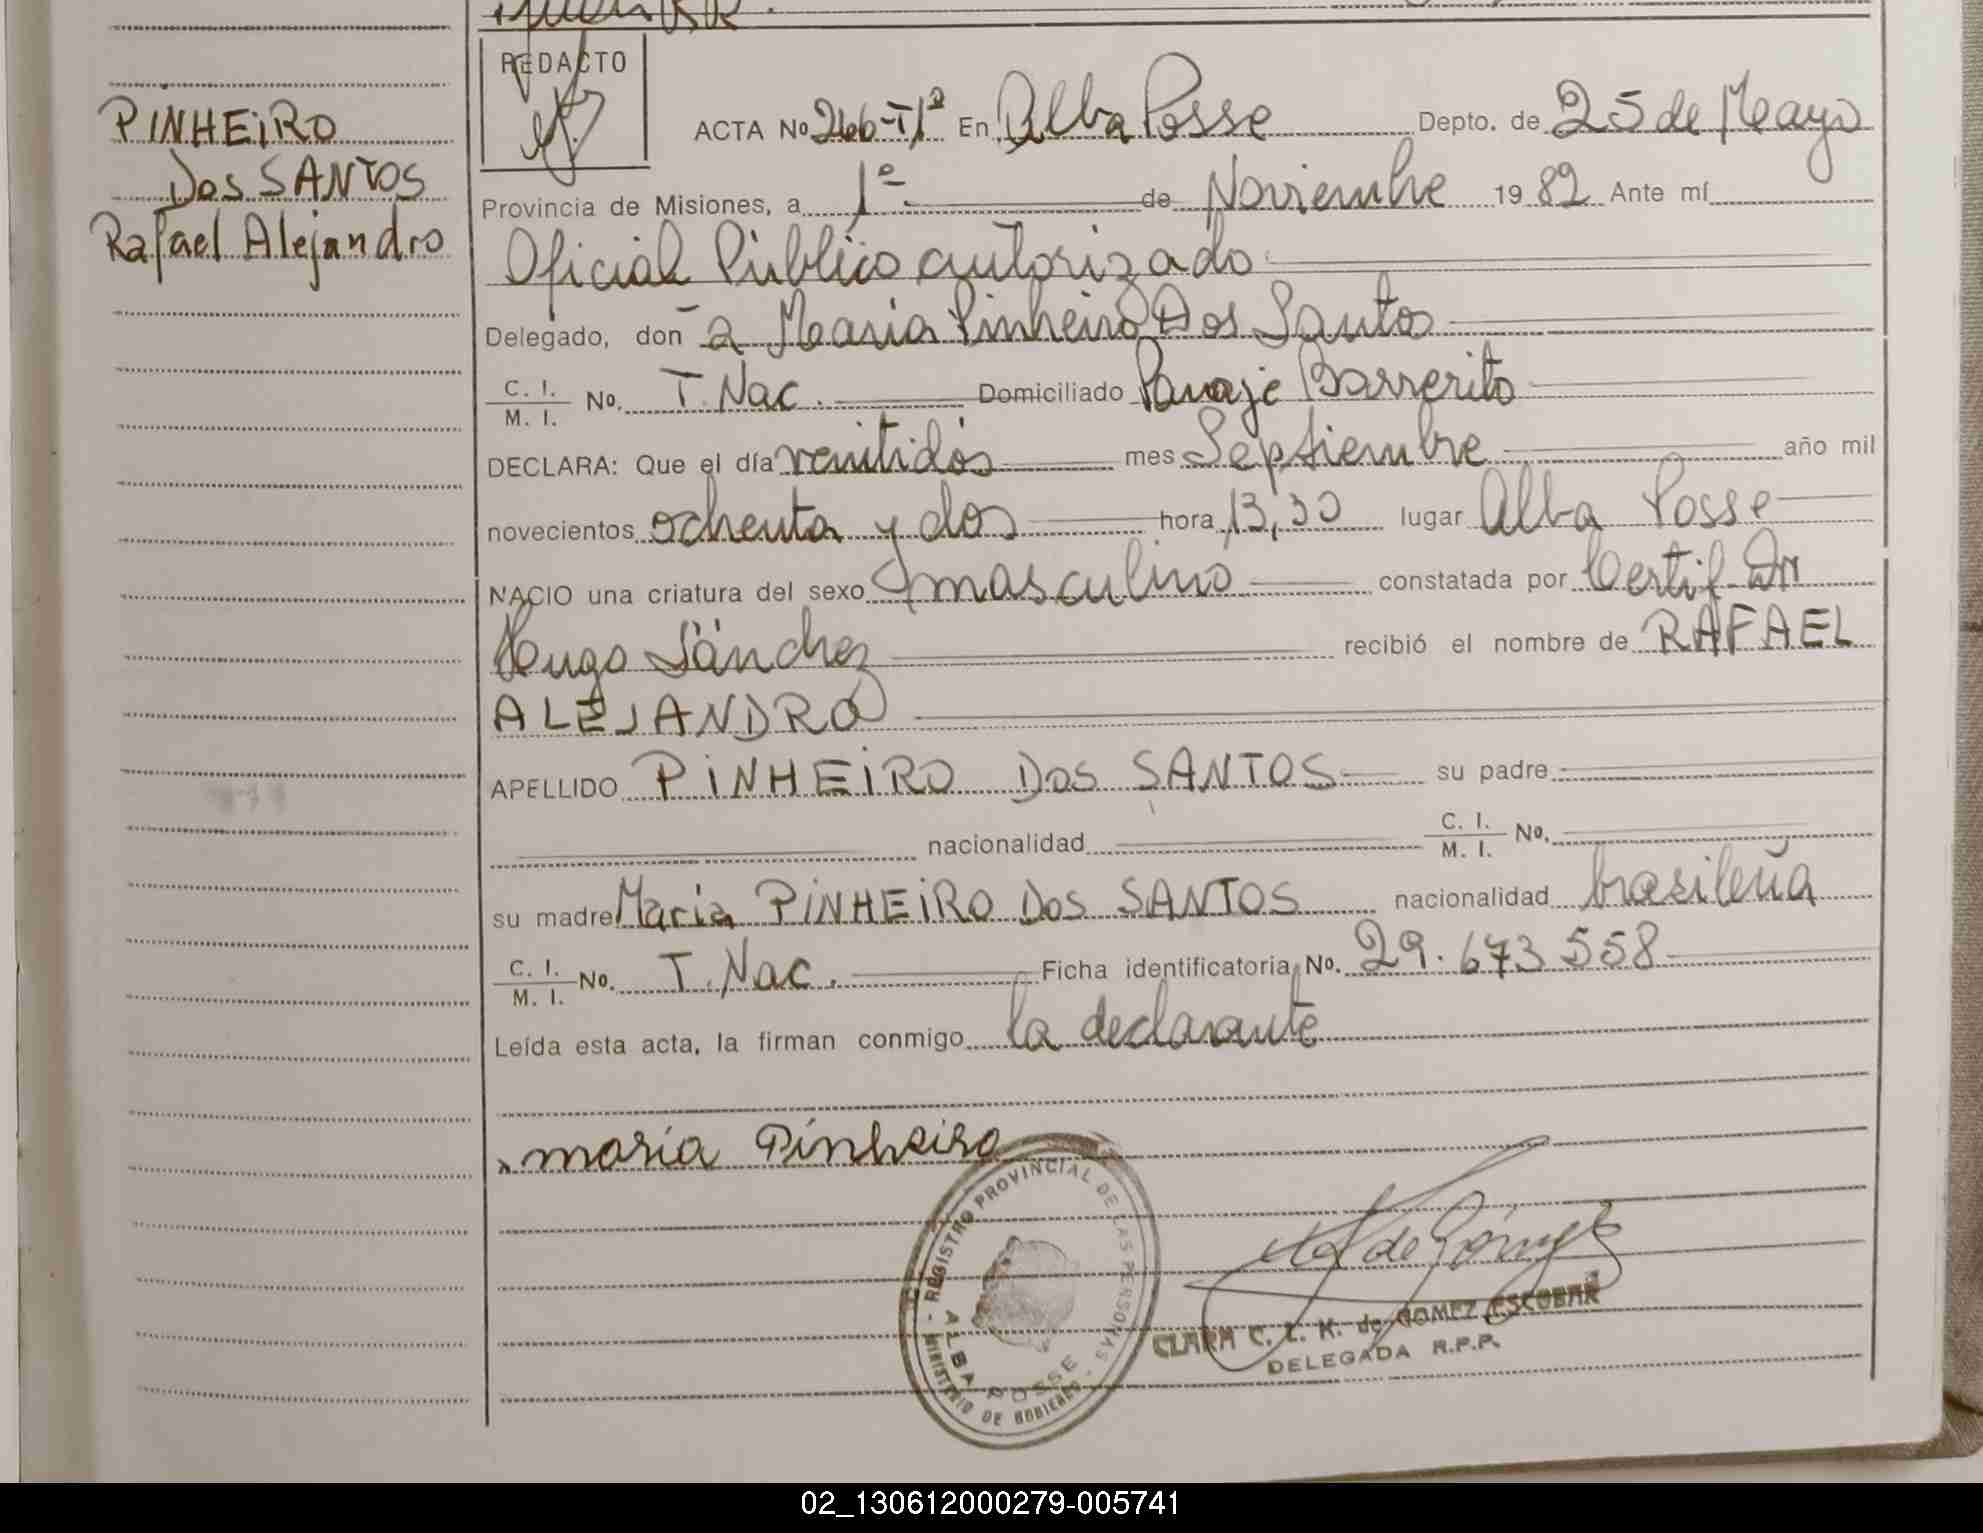 PINHEIRO
Dos SANTOS
Rafael Alejandro
REDACTO
ACTA No 266-Tº1º En Alba Posse Depto. de 25 de Mayo
Provincia de Misiones, a 1º de Noviembre 1982 Ante mí
Oficial Público autorizado
Delegado, don a Maria Pinheiro Dos Santos
C. I. / M. I. No. T. Nac. Domiciliado Paraje Barrerito
DECLARA: Que el día veintidós mes Septiembre año mil
novecientos ochenta y dos hora 13,30 lugar Alba Posse
NACIO una criatura del sexo masculino constatada por Certif Dr
Hugo Sánchez recibió el nombre de RAFAEL
ALEJANDRO
APELLIDO PINHEIRO Dos SANTOS su padre
nacionalidad C. I. / M. I. No.
su madre Maria PINHEIRO Dos SANTOS nacionalidad brasileña
C. I. / M. I. No. T. Nac. Ficha identificatoria No. 29.673558
Leída esta acta, la firman conmigo la declarante
x maria Pinheiro
REGISTRO PROVINCIAL DE LAS PERSONAS
MINISTERIO DE GOBIERNO
ALBA POSSE
de Gómez
CLARA C. L. K. de GOMEZ ESCOBAR
DELEGADA R.P.P.
02_130612000279-005741